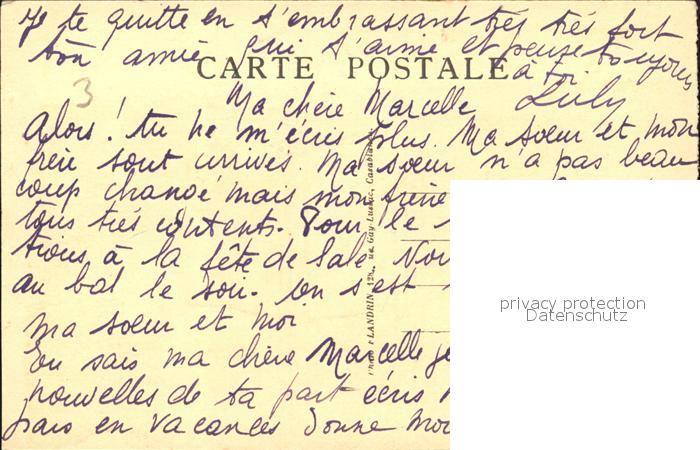 Je te quitte en t'embrassant très très fort
ton amie qui t'aime et pense toujours
à toi
CARTE POSTALE
Luly
3
Ma chère Marcelle
Alors! tu ne m'écris plus. Ma sœur et mon
frère sont arrivés. Ma sœur n'a pas beau
coup changé mais mon frère
tous très contents. Pour le
tions à la fête de Salé Nou
au bal le soir. on s'est
ma sœur et moi
Tu sais ma chère Marcelle je
nouvelles de ta part écris
pars en vacances donne moi
Photo FLANDRIN, rue Gay-Lussac, Casablanca
privacy protection
Datenschutz